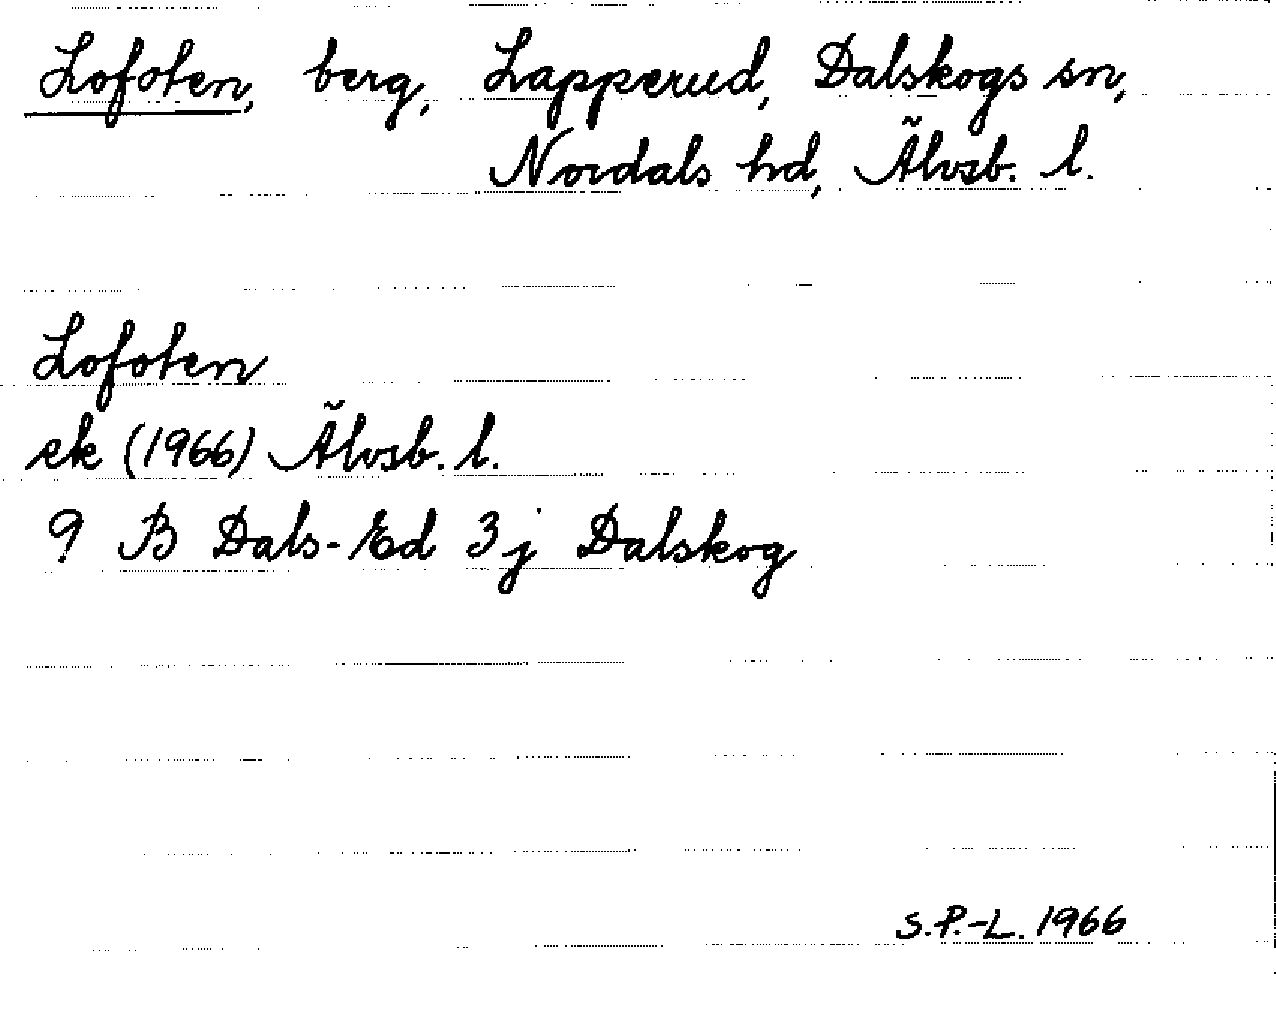 Lofoten, berg, Lapperud, Dalskogs sn,
Nordals hd, Älvsb. l.
Lofoten
ek (1966) Älvsb. l.
9 B Dals-Ed 3 j Dalskog
S.P.-L. 1966